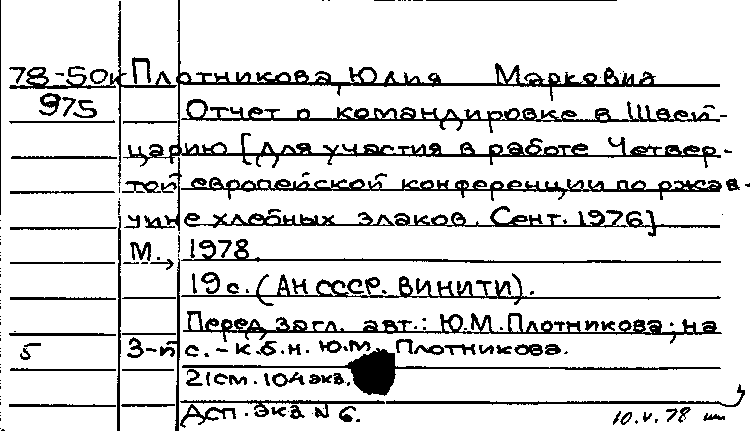 78-50к Плотникова, Юлия Марковна
975 Отчет о командировке в Швей-
царию [для участия в работе Четвер-
той европейской конференции по ржав-
чине хлебных злаков. Сент. 1976]
М., 1978.
19 с. (АН СССР. ВИНИТИ).
Перед загл. авт.: Ю.М. Плотникова; на
5 3-й с. - к.б.н. Ю.М. Плотникова.
21 см. 104 экз.
Деп. экз N 6.
10.V.78